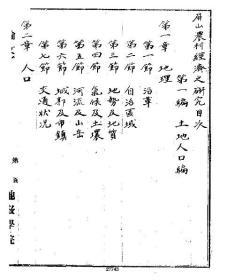 屏山農村經濟之研究目次
第一編 土地人口編
第一章 地理
第一節 沿革
第二節 自治區域
第三節 地勢及地質
第四節 氣候及土壤
第五節 河流及山岳
第六節 城郭及市鎮
第七節 交通狀況
第二章 人口